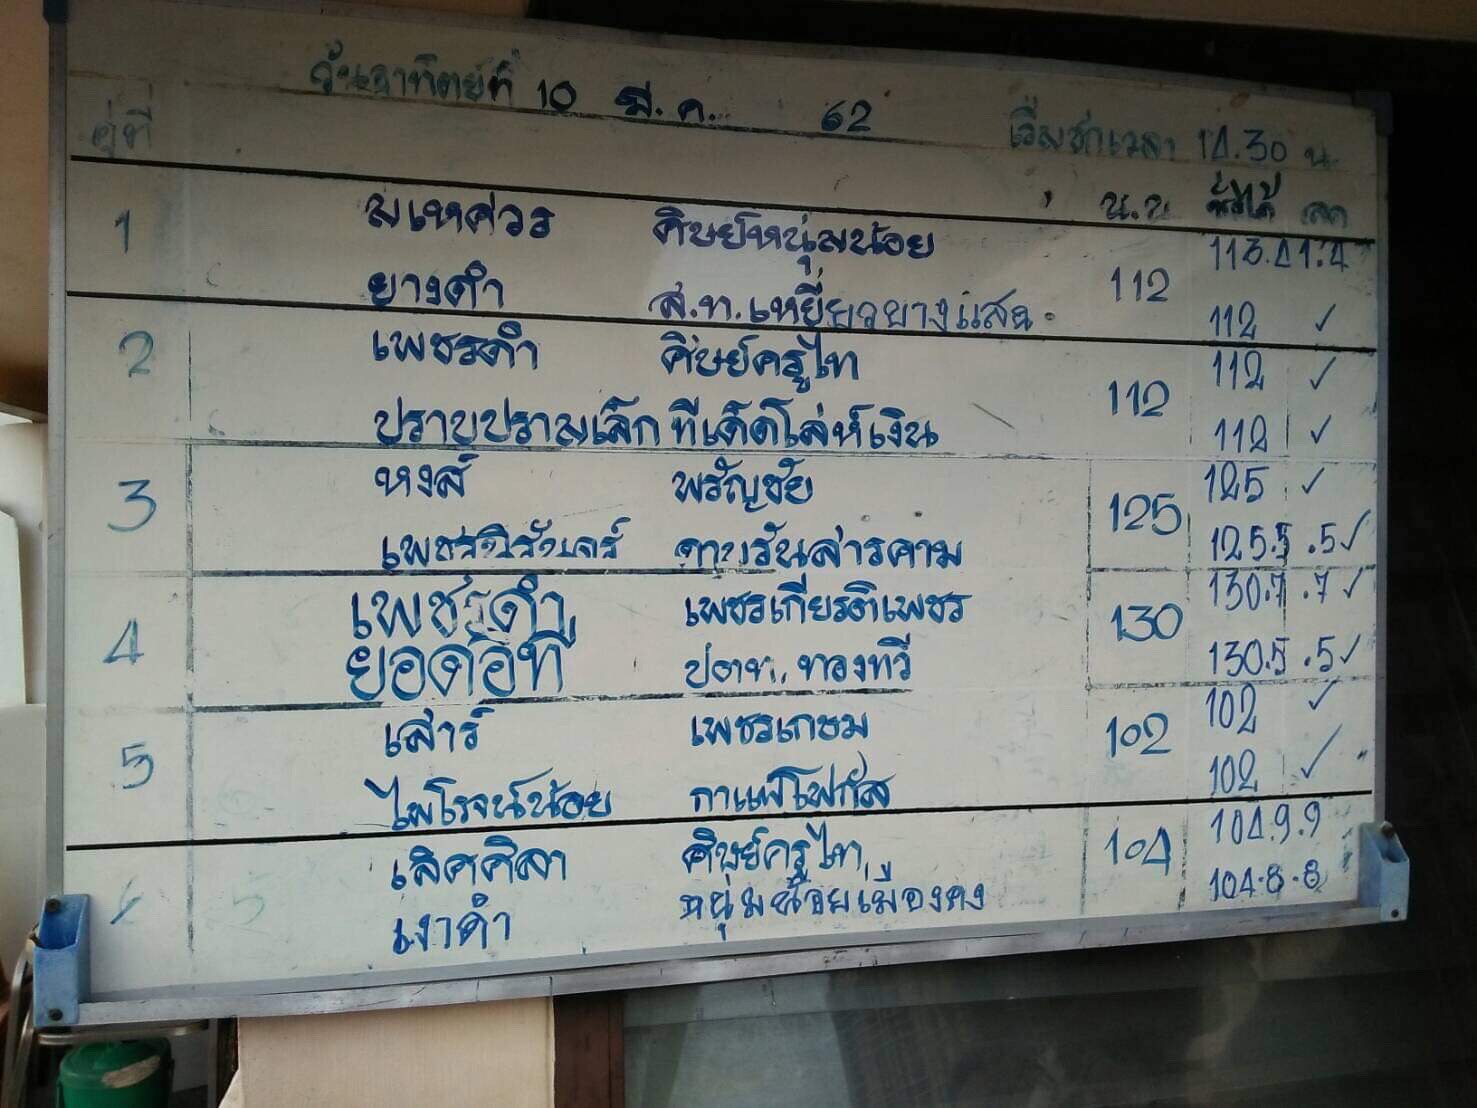 วันอาทิตย์ที่ 10 มี.ค. 62 เริ่มชกเวลา 14.30 น.
คู่ที่ น.น. ชั่งได้ ลด
1 มเหศวร ศิษย์หนุ่มน้อย 112 113.4 1.4
ยางดำ ส.ท.เหยี่ยวยางแสด 112 ✓
2 เพชรดำ ศิษย์ครูไท 112 112 ✓
ปราบปรามเล็ก ทีเด็ดโล่ห์เงิน 112 ✓
3 หงส์ พรัญชัย 125 125 ✓
ดาบรันสารคาม 125.5 .5✓
4 เพชรดำ เพชรเกียรติเพชร 130 130.7 .7✓
ยอดอีที ปตท. ทองทวี 130.5 .5✓
5 เสาร์ เพชรเกษม 102 102 ✓
ไพโรจน์น้อย กาแฟโฟกัส 102 ✓
6 เลิศศิลา ศิษย์ครูไท 104 104.9 .9
เงาดำ หนุ่มน้อยเมืองคง 104.8 .8